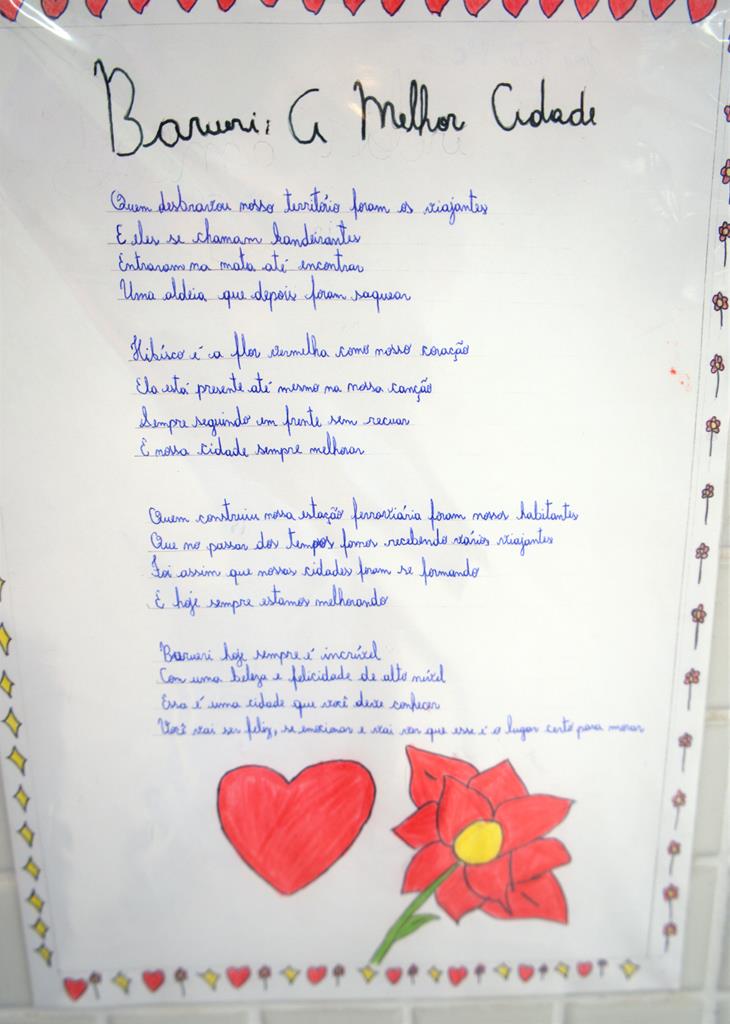 Barueri: A Melhor Cidade
Quem desbravou nosso território foram os viajantes
E eles se chamam bandeirantes
Entraram na mata até encontrar
Uma aldeia que depois foram saquear
Hibisco é a flor vermelha como nosso coração
Ela está presente até mesmo na nossa canção
Sempre seguindo em frente sem recuar
E nossa cidade sempre melhorar
Quem construiu nossa estação ferroviária foram nossos habitantes
Que no passar dos tempos fomos recebendo vários viajantes
Foi assim que nossas cidades foram se formando
E hoje sempre estamos melhorando
Barueri hoje sempre é incrível
Con uma beleza e felicidade de alto nível
Essa é uma cidade que você deve conhecer
Você vai ser feliz, se emocionar e vai ver que esse é o lugar certo para morar